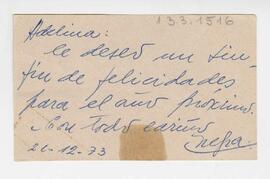 13 3.1516
Adelina:
le deseo un sin-
fín de felicidades
para el año próximo.
Con todo cariño
21-12-73